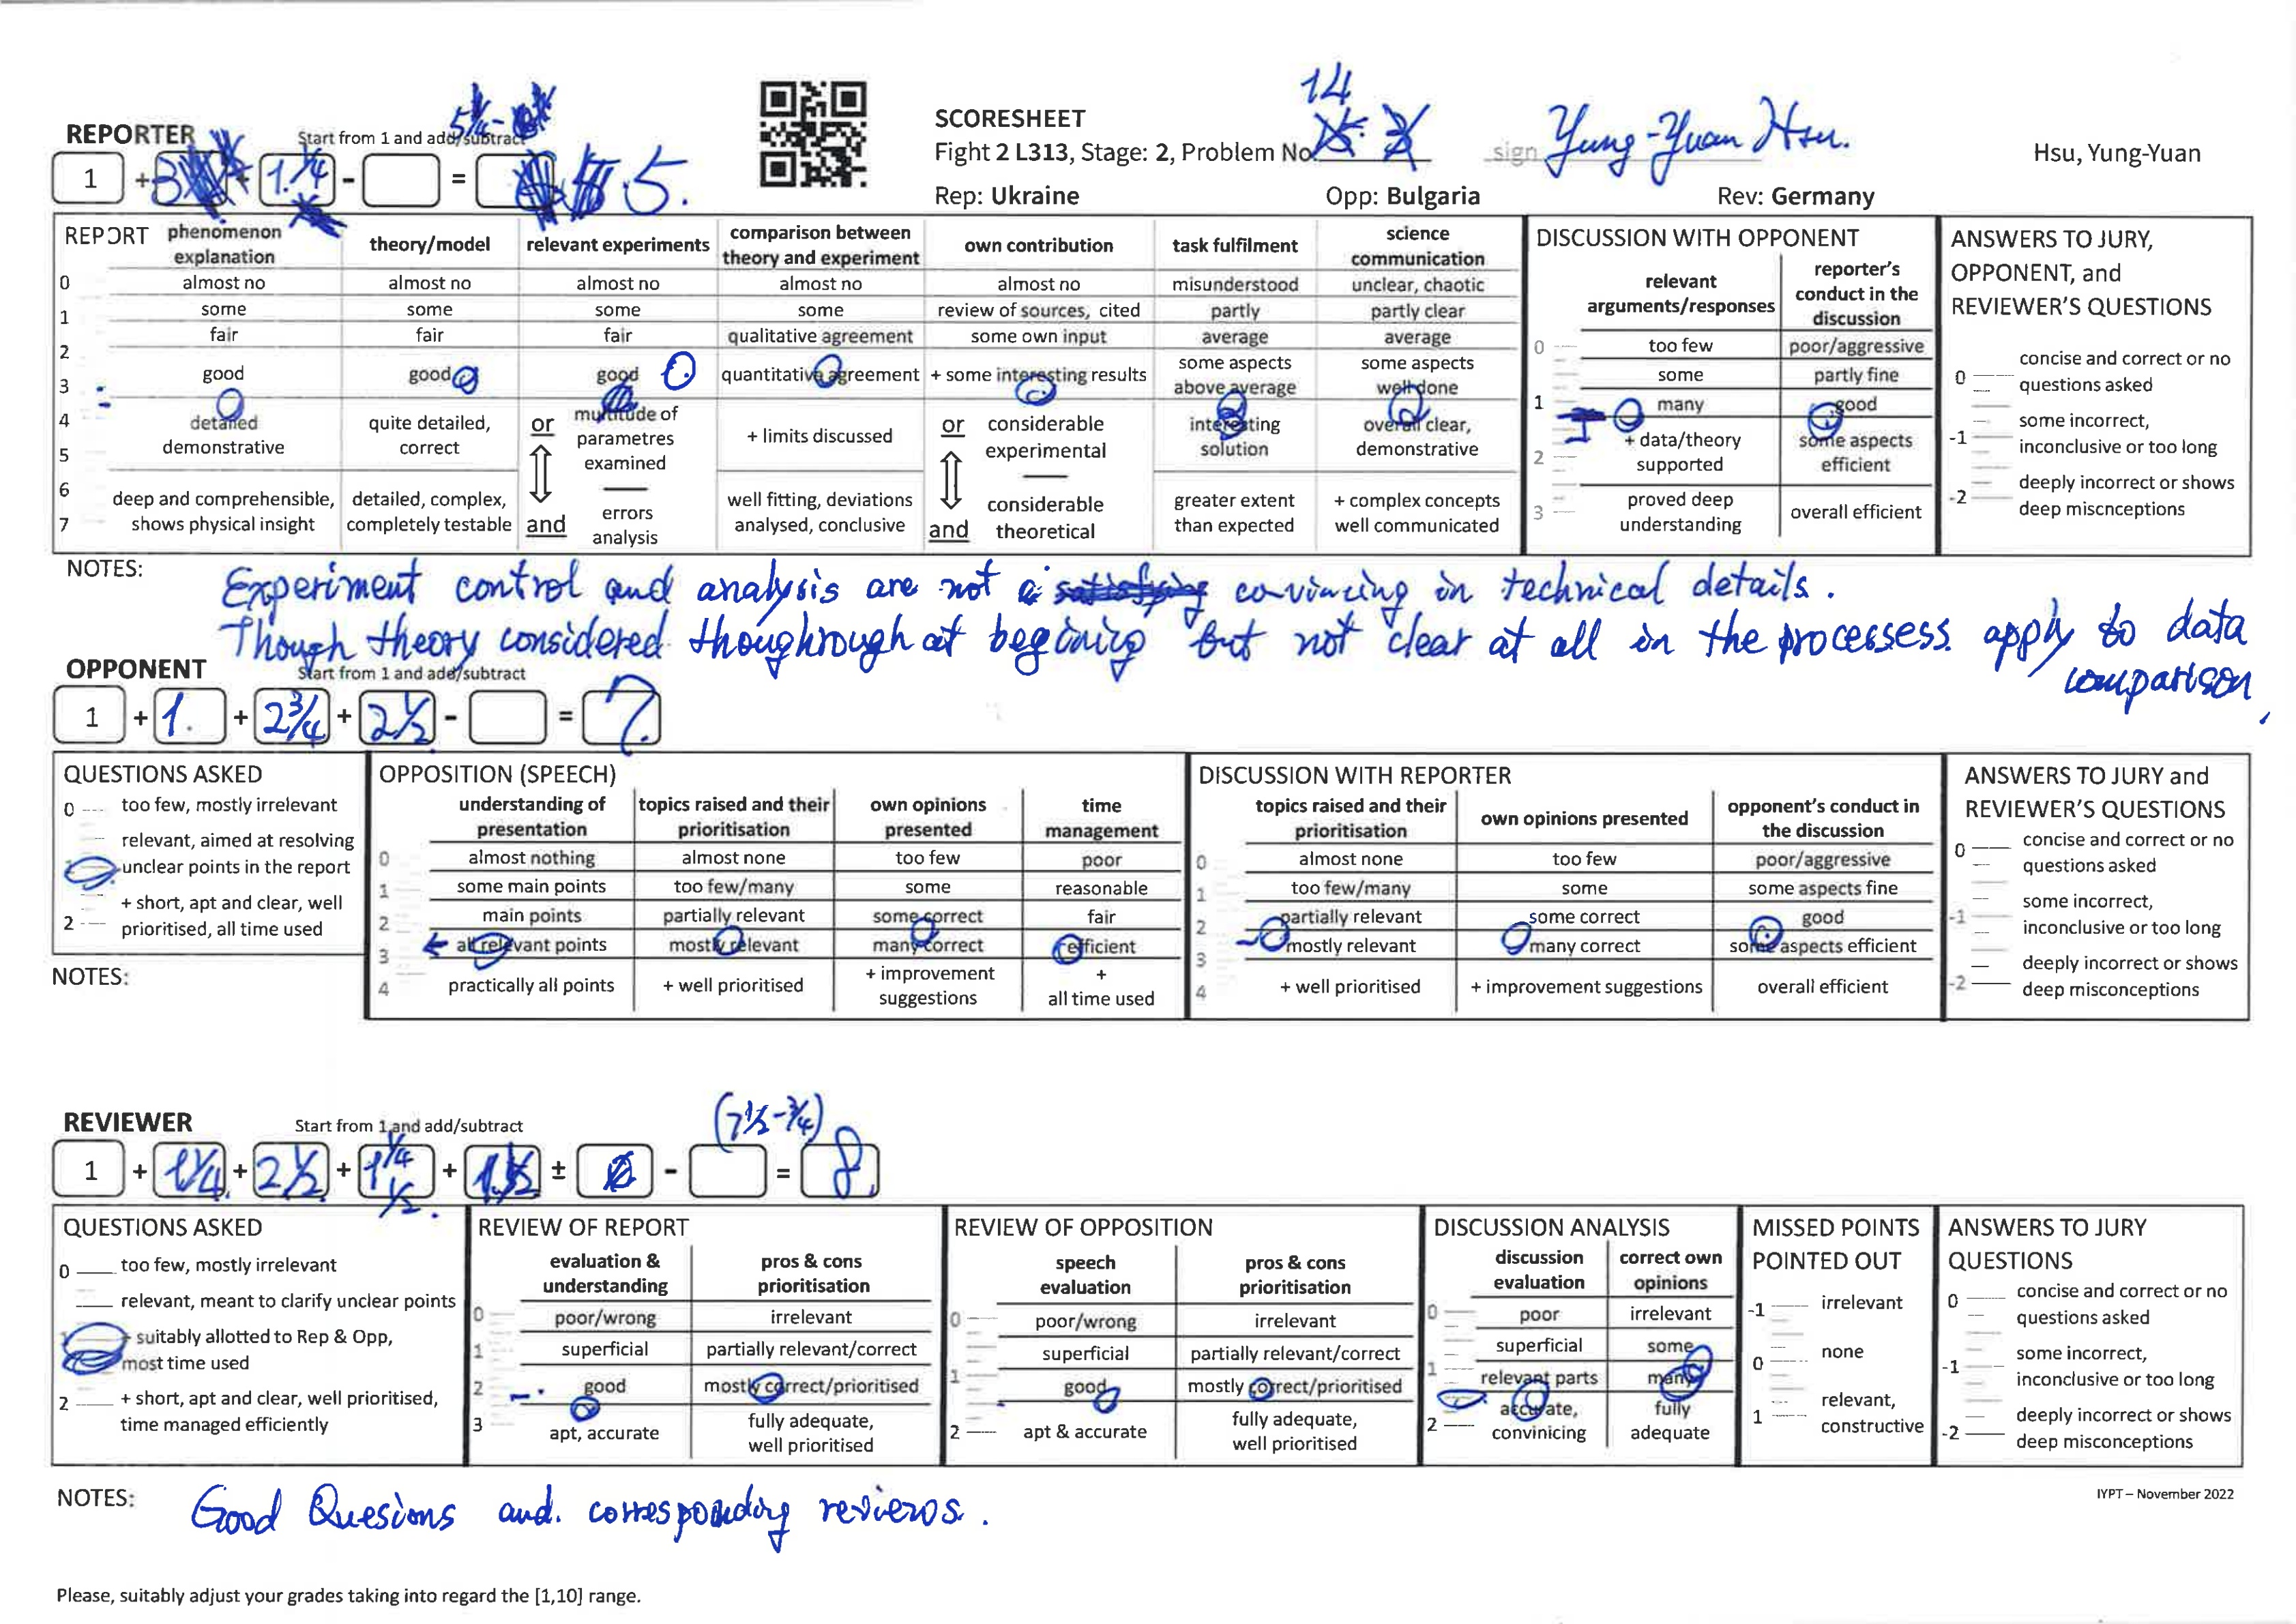 14
REPORTER
Start from 1 and add/subtract
SCORESHEET
Fight 2 L313, Stage: 2, Problem No.
sign Yung-Yuan Hsu.
Hsu, Yung-Yuan
1 + 3 + 1. 1/4 - = 5.
Rep: Ukraine Opp: Bulgaria Rev: Germany
REPORT phenomenon explanation theory/model relevant experiments comparison between theory and experiment own contribution task fulfilment science communication
0 almost no almost no almost no almost no almost no misunderstood unclear, chaotic
1 some some some some review of sources, cited partly partly clear
2 fair fair fair qualitative agreement some own input average average
3 good good good quantitative agreement + some interesting results some aspects above average some aspects well done
4 detailed demonstrative quite detailed, correct or multitude of parametres examined + limits discussed or considerable experimental interesting solution overall clear, demonstrative
5
6 deep and comprehensible, shows physical insight detailed, complex, completely testable and errors analysis well fitting, deviations analysed, conclusive and considerable theoretical greater extent than expected + complex concepts well communicated
7
DISCUSSION WITH OPPONENT
relevant arguments/responses reporter's conduct in the discussion
0 too few poor/aggressive
some partly fine
1 many good
+ data/theory supported some aspects efficient
2
3 proved deep understanding overall efficient
ANSWERS TO JURY, OPPONENT, and REVIEWER'S QUESTIONS
0 concise and correct or no questions asked
-1 some incorrect, inconclusive or too long
-2 deeply incorrect or shows deep miscnceptions
NOTES:
Experiment control and analysis are not a convincing in technical details.
Though theory considered thoughrough at begining but not clear at all in the processess apply to data
comparison,
OPPONENT
Start from 1 and add/subtract
1 + 1. + 2 3/4 + 2 1/2 - = 7.
QUESTIONS ASKED
0 too few, mostly irrelevant
relevant, aimed at resolving unclear points in the report
+ short, apt and clear, well
2 prioritised, all time used
NOTES:
OPPOSITION (SPEECH)
understanding of presentation topics raised and their prioritisation own opinions presented time management
0 almost nothing almost none too few poor
1 some main points too few/many some reasonable
2 main points partially relevant some correct fair
3 all relevant points mostly relevant many correct efficient
4 practically all points + well prioritised + improvement suggestions + all time used
DISCUSSION WITH REPORTER
topics raised and their prioritisation own opinions presented opponent's conduct in the discussion
0 almost none too few poor/aggressive
1 too few/many some some aspects fine
2 partially relevant some correct good
3 mostly relevant many correct some aspects efficient
4 + well prioritised + improvement suggestions overall efficient
ANSWERS TO JURY and REVIEWER'S QUESTIONS
0 concise and correct or no questions asked
-1 some incorrect, inconclusive or too long
-2 deeply incorrect or shows deep misconceptions
REVIEWER
Start from 1 and add/subtract
(7 1/2 - 3/4)
1 + 1 1/4 + 2 1/2 + 1 1/4 1/2 + ± - = 8.
QUESTIONS ASKED
0 too few, mostly irrelevant
relevant, meant to clarify unclear points
+ suitably allotted to Rep & Opp, most time used
2 + short, apt and clear, well prioritised, time managed efficiently
REVIEW OF REPORT
evaluation & understanding pros & cons prioritisation
0 poor/wrong irrelevant
1 superficial partially relevant/correct
2 good mostly correct/prioritised
3 apt, accurate fully adequate, well prioritised
REVIEW OF OPPOSITION
speech evaluation pros & cons prioritisation
0 poor/wrong irrelevant
superficial partially relevant/correct
1 good mostly correct/prioritised
2 apt & accurate fully adequate, well prioritised
DISCUSSION ANALYSIS
discussion evaluation correct own opinions
0 poor irrelevant
superficial some
1 relevant parts many
2 accurate, convinicing fully adequate
MISSED POINTS POINTED OUT
-1 irrelevant
0 none
1 relevant, constructive
ANSWERS TO JURY QUESTIONS
0 concise and correct or no questions asked
-1 some incorrect, inconclusive or too long
-2 deeply incorrect or shows deep misconceptions
NOTES:
Good Quesions and. corresponding reviews.
IYPT – November 2022
Please, suitably adjust your grades taking into regard the [1,10] range.